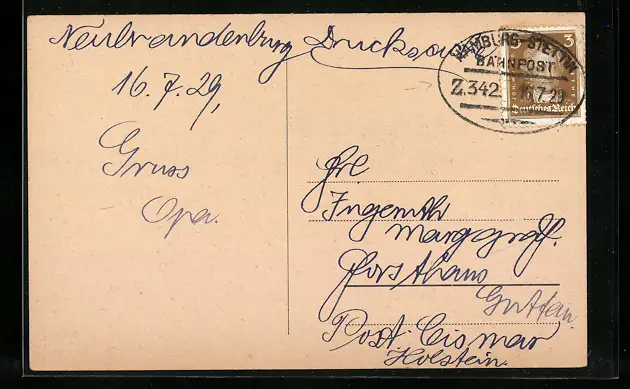 Neubrandenburg Drucksache
16.7.29,
Gruss
Opa.
HAMBURG-STETTIN
BAHNPOST
Z.342 16.7.29
3
Deutsches Reich
Frl
Ingeruth
Marggraf.
Forsthaus
Guttau.
Post: Cismar
Holstein.